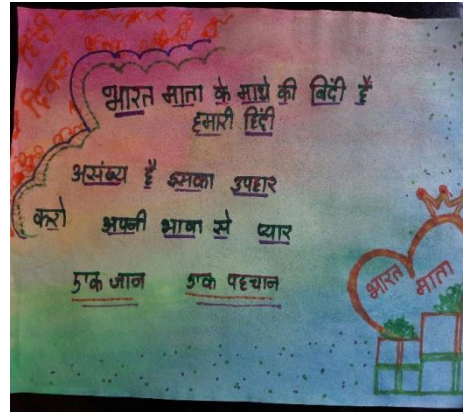 हिंदी
दिवस
भारत माता के माथे की बिंदी है
हमारी हिंदी
असंख्य है इसका उपहार
करो अपनी भाषा से प्यार
एक जान एक पहचान
भारत माता